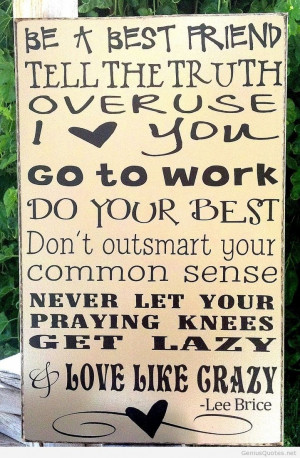 BE A BEST FRIEND
TELL THE TRUTH
OVERUSE
I ♥ YOU
GO TO WORK
DO YOUR BEST
Don't outsmart your
common sense
NEVER LET YOUR
PRAYING KNEES
GET LAZY
& LOVE LIKE CRAZY
-Lee Brice
GeniusQuotes.net